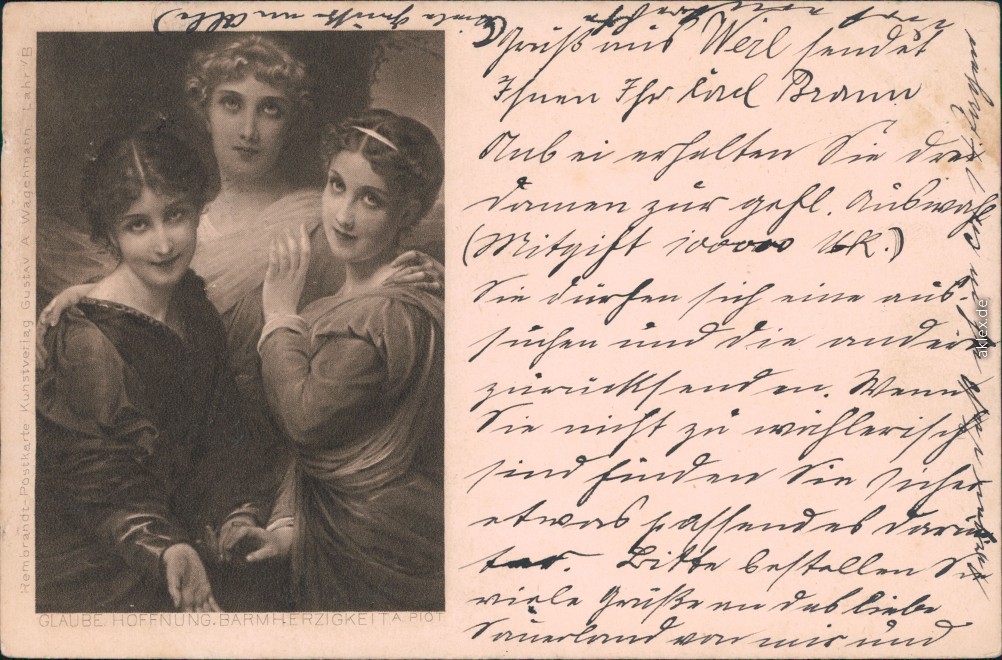 Gruß aus Werl sendet
Ihnen Ihr Carl Braun
Anbei erhalten Sie drei
Damen zur gefl. Auswahl
(Mitgift 100000 Mk.)
Sie dürfen sich eine aus-
suchen und die anderen
zurücksenden. Wenn
Sie nicht zu wählerisch
sind finden Sie sicher
etwas passendes darun
ter. Bitte bestellen Sie
viele Grüße an das liebe
Sauerland von mir und
(Viele Grüße an Alle)
Rembrandt-Postkarte Kunstverlag Gustav A. Wagehmann. Lahr i/B
GLAUBE. HOFFNUNG. BARMHERZIGKEIT A. PIOT
aklex.de